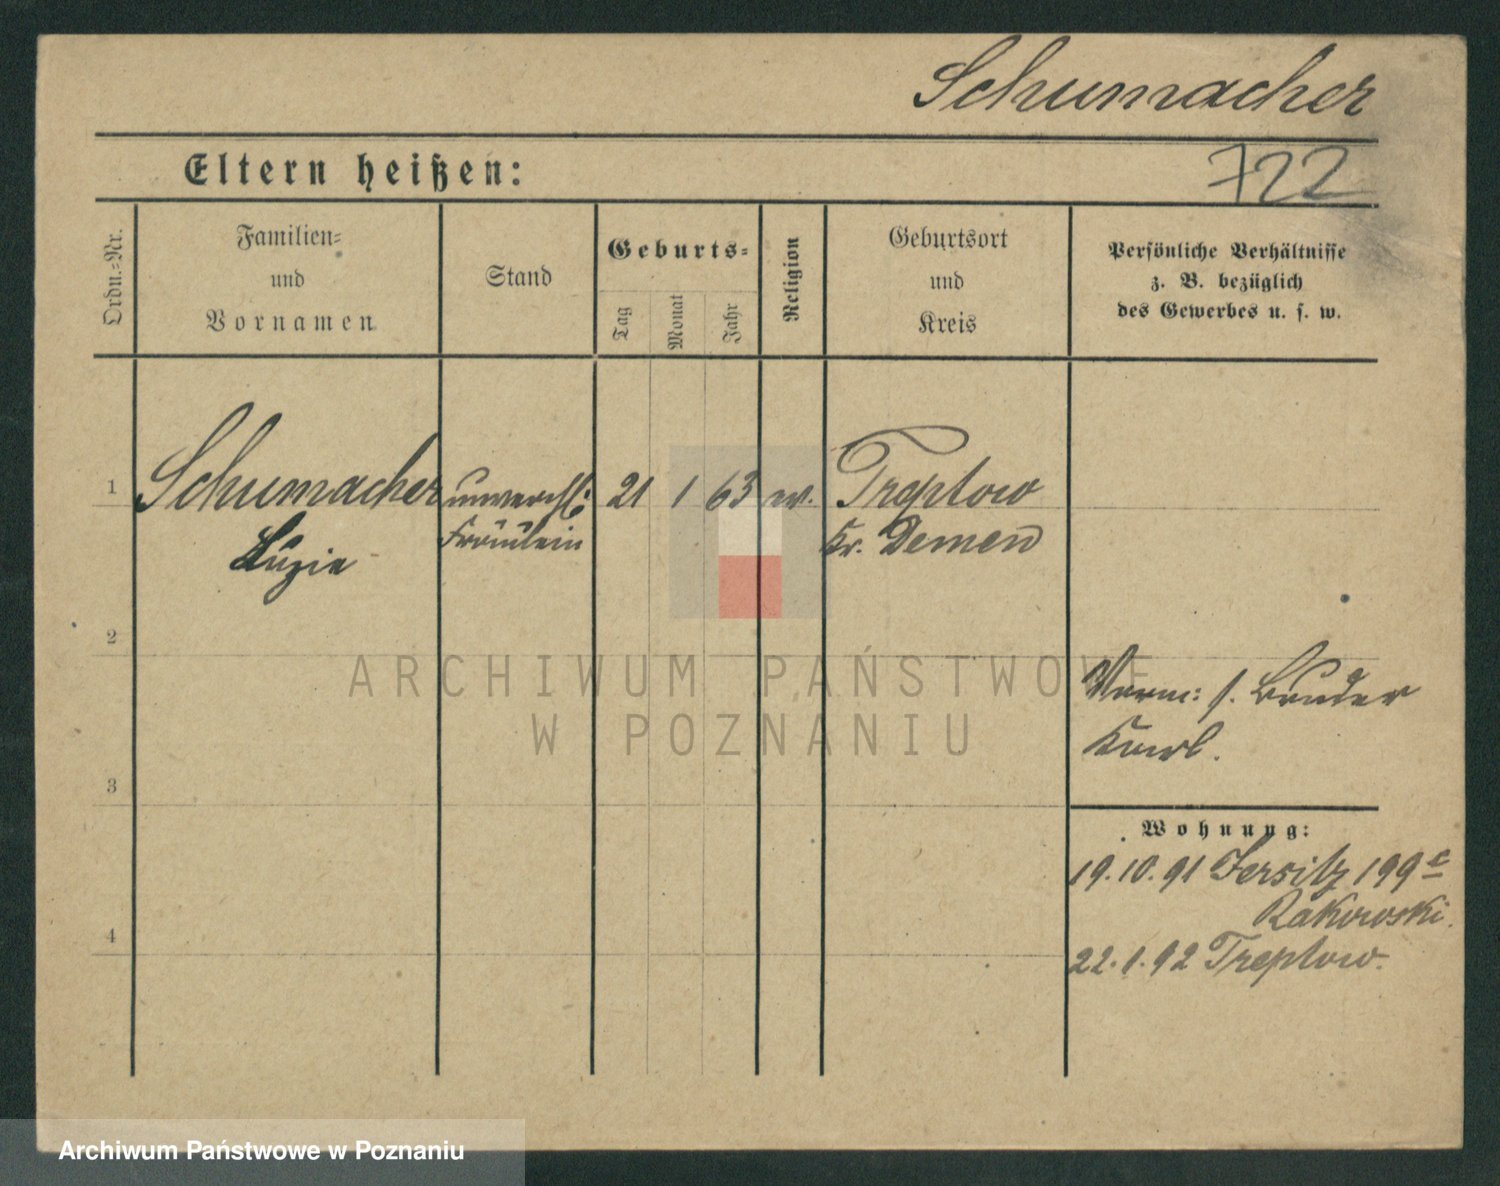 Schumacher
Eltern heißen:
722
Ordn.-Nr.
Familien-
und
Vornamen.
Stand
Geburts-
Tag
Monat
Jahr
Religion
Geburtsort
und
Kreis
Persönliche Verhältnisse
z. B. bezüglich
des Gewerbes u. s. w.
1
Schumacher
Luzie
unverehl:
Fräulein
21 1 63 ev.
Treptow
Kr. Demen
2
3
4
Verm: s. Bruder
Karl.
Wohnung:
19.10.91 Jersitz 199c
Rakowski.
22.1.92 Treptow.
ARCHIWUM PAŃSTWOWE
W POZNANIU
Archiwum Państwowe w Poznaniu